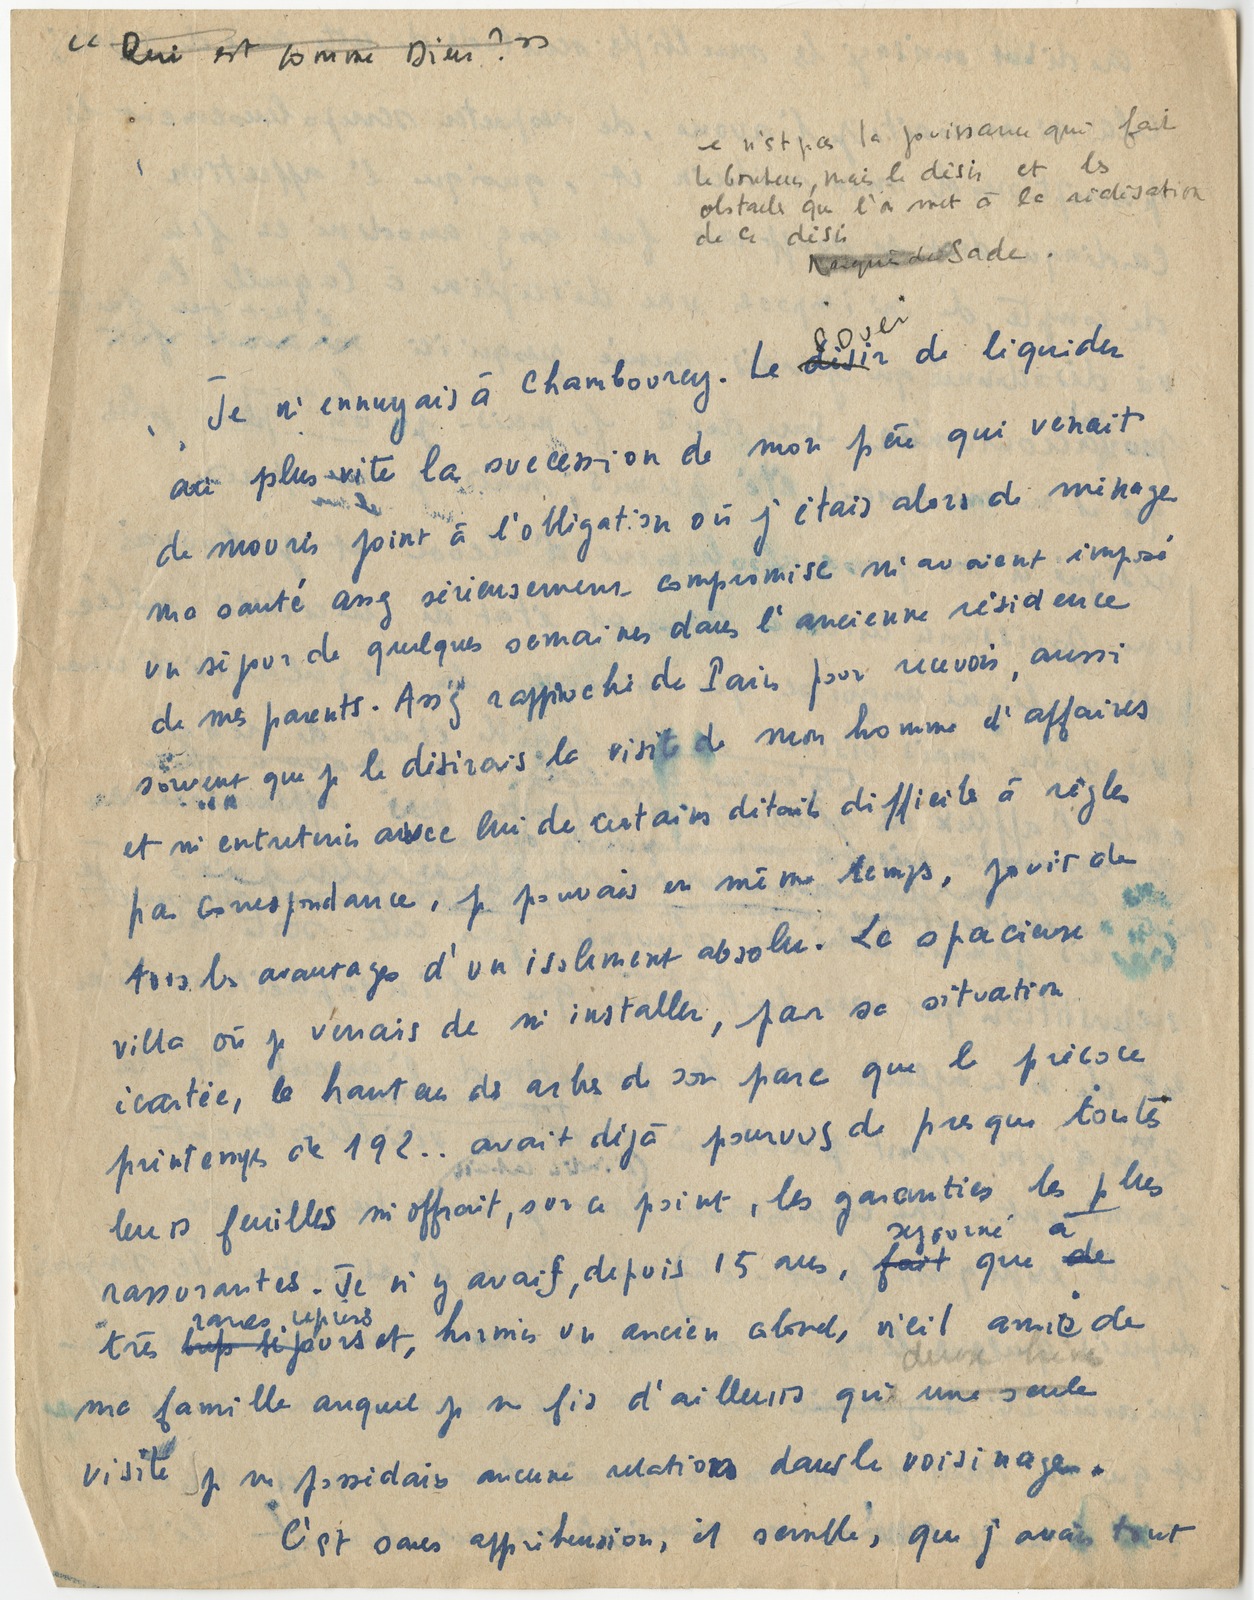 " Qui est comme Dieu ? "
ce n'est pas la jouissance qui fait
le bonheur, mais le désir et les
obstacle que l'on met à la réalisation
de ce désir
Marquis de Sade .
souci
Je m'ennuyais à Chambourcy. Le désir de liquider
au plus vite la succession de mon père qui venait
de mourir joint à l'obligation où j'étais alors de ménager
ma santé assez sérieusement compromise m'avaient imposé
un séjour de quelques semaines dans l'ancienne résidence
de mes parents. Assez rapproché de Paris pour recevoir, aussi
souvent que je le désirais la visite de mon homme d'affaires
et m'entretenir avec lui de certains détails difficile à régler
par correspondance, je pouvais en même temps, jouir de
tous les avantages d'un isolement absolu. La spacieuse
villa où je venais de m'installer, par sa situation
écartée, la hauteur des arbres de son parc que le précoce
printemps de 192.. avait déjà pourvus de presque toutes
leurs feuilles m'offrait, sur ce point, les garanties les plus
séjourné à
rassurantes. Je n'y avais, depuis 15 ans, fait que de
rares, repris
très brefs séjours et, hormis un ancien abord, vieil ami de
deux
ma famille auquel je ne fis d'ailleurs qu'une seule
visite je ne possédais aucune relations dans le voisinage.
C'est sans appréhension, il semble, que j'avais tout